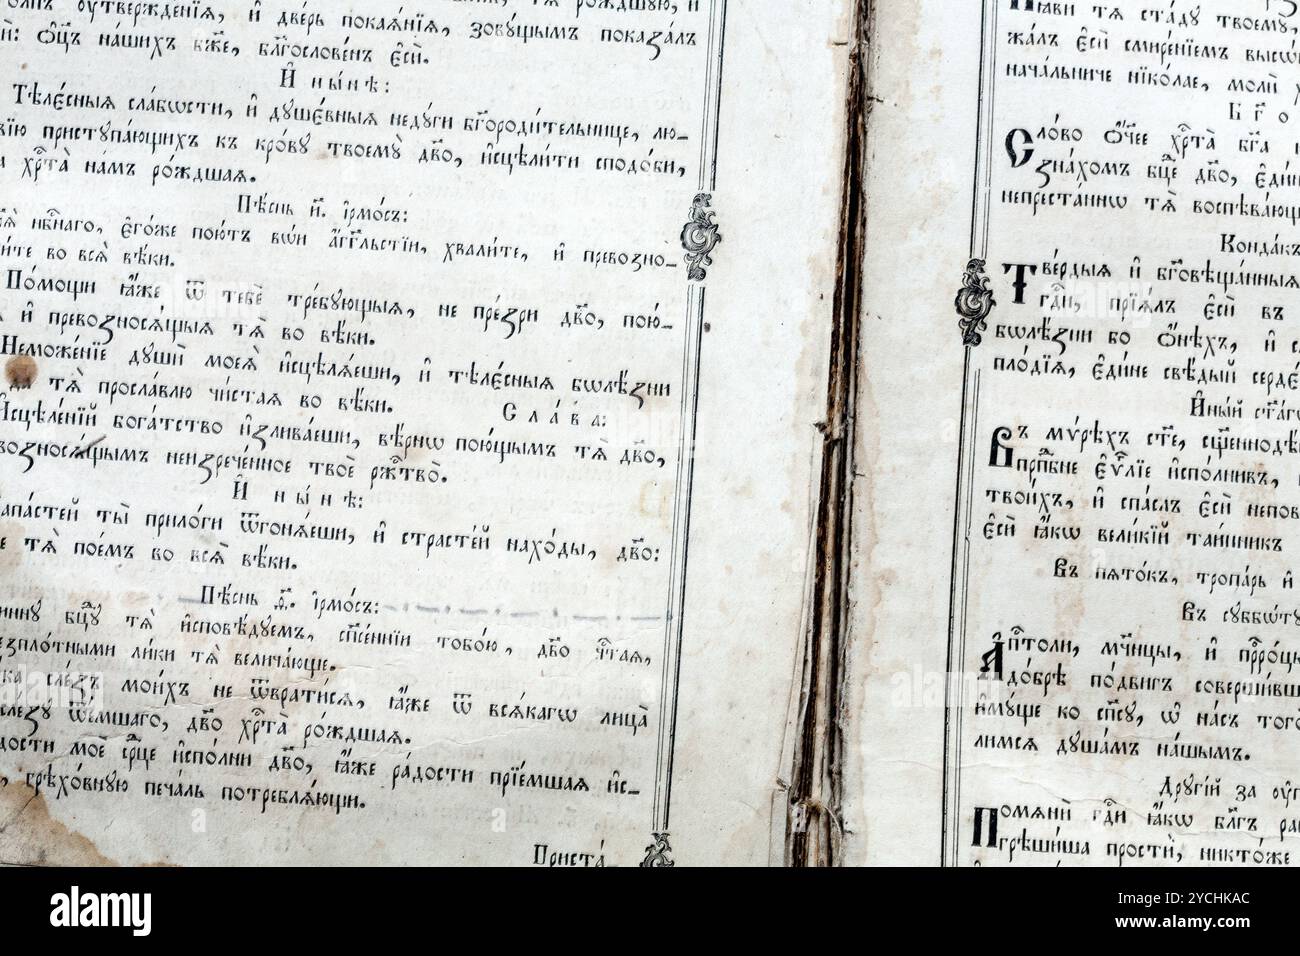 ᲂу҆твержде́нїѧ, и҆ две́рь покаѧ́нїѧ, зовꙋ́щымъ показа́лъ
ѻ҆ц҃ъ на́шихъ бж҃е, блгⷭ҇ове́нъ є҆сѝ.
И҆ ны́нѣ:
Тѣлє́сныѧ сла́бѡсти, и҆ дꙋшє́вныѧ недꙋ́ги бг҃ороди́тельнице, лю-
приступа́ющихъ къ кро́вꙋ твоемꙋ̀ дв҃о, и҆сцѣли́ти сподо́би,
хрⷭ҇та̀ на́мъ ро́ждшаѧ.
Пѣ́снь и҃. і҆рмо́съ:
нбⷭ҇наго, є҆го́же пою́тъ во́и а҆́гг҃льстїи, хвали́те, и҆ превозно-
во всѧ̑ вѣ́ки.
По́мощи ꙗ҆́же ѿ тебє̀ тре́бꙋющыѧ, не пре́зри дв҃о, пою́-
и҆ превозносѧ́щыѧ тѧ̀ во вѣ́ки.
Неможе́нїе дꙋшѝ моеѧ̀ и҆сцѣлѧ́еши, и҆ тѣлє́сныѧ бѡлѣ̑зни
да тѧ̀ просла́влю чи́стаѧ во вѣ́ки.
Сла́ва:
И҆сцѣле́нїй бога́тство и҆злива́еши, вѣ́рнѡ пою́щымъ тѧ̀ дв҃о,
неизрече́нное твоѐ ржⷭ҇тво̀.
И҆ ны́нѣ:
ты̀ прило́ги ѿгонѧ́еши, и҆ страсте́й нахо́ды, дв҃о:
тѧ̀ пое́мъ во всѧ̑ вѣ́ки.
Пѣ́снь ѳ҃. і҆рмо́съ:
бцⷣꙋ тѧ̀ и҆сповѣ́дꙋемъ, спⷭ҇енїи тобо́ю, дв҃о чⷭ҇таѧ,
ли́ки тѧ̀ велича́юще.
сле́зъ мои́хъ не ѿврати́сѧ, ꙗ҆́же ѿ всѧ́кагѡ лица̀
сле́зꙋ ѿе́мшаго, дв҃о хрⷭ҇та̀ ро́ждшаѧ.
моѐ срⷣце и҆спо́лни дв҃о, ꙗ҆́же ра́дости прїе́мшаѧ и҆с-
грѣхо́внꙋю печа́ль потреблѧ́ющи.
Приста́
тѧ̀ ста́дꙋ твоемꙋ̀,
є҆сѝ смире́нїемъ
нача́льниче нїко́лае, молѝ
Сло́во ѻ҆́чее хрⷭ҇та̀ бг҃а
зна́хомъ бцⷣе дв҃о,
непреста́ннѡ тѧ̀
Конда́къ
Тве́рдыѧ и҆ бг҃овѣща́нныѧ
гдⷭ҇и, прїѧ́лъ є҆сѝ въ
бѡлѣ̑зни бо ѻ҆́нѣхъ, и҆
плодїѧ, є҆ди́не свѣ́дый
И҆́ный
Въ мѵ́рѣхъ ст҃е,
прпⷣбне є҆ѵⷢ҇лїе и҆спо́лнивъ,
твои́хъ, и҆ спа́слъ є҆сѝ
є҆сѝ ꙗ҆́кѡ вели́кїй таи́нникъ
Въ пѧто́къ, тропа́рь и҆
Въ сꙋббѡ́тꙋ
А҆пⷭ҇толи, мч҃нцы, и҆ прⷪ҇ро́цы
до́брѣ по́двигъ
и҆мꙋ́ще ко сп҃сꙋ, ѡ҆ на́съ
ли́мсѧ дꙋша́мъ на́шымъ.
Дрꙋгі́й за
Помѧнѝ гдⷭ҇и ꙗ҆́кѡ бл҃гъ
простѝ, никто́же
alamy
Image ID: 2YCHKAC
www.alamy.com